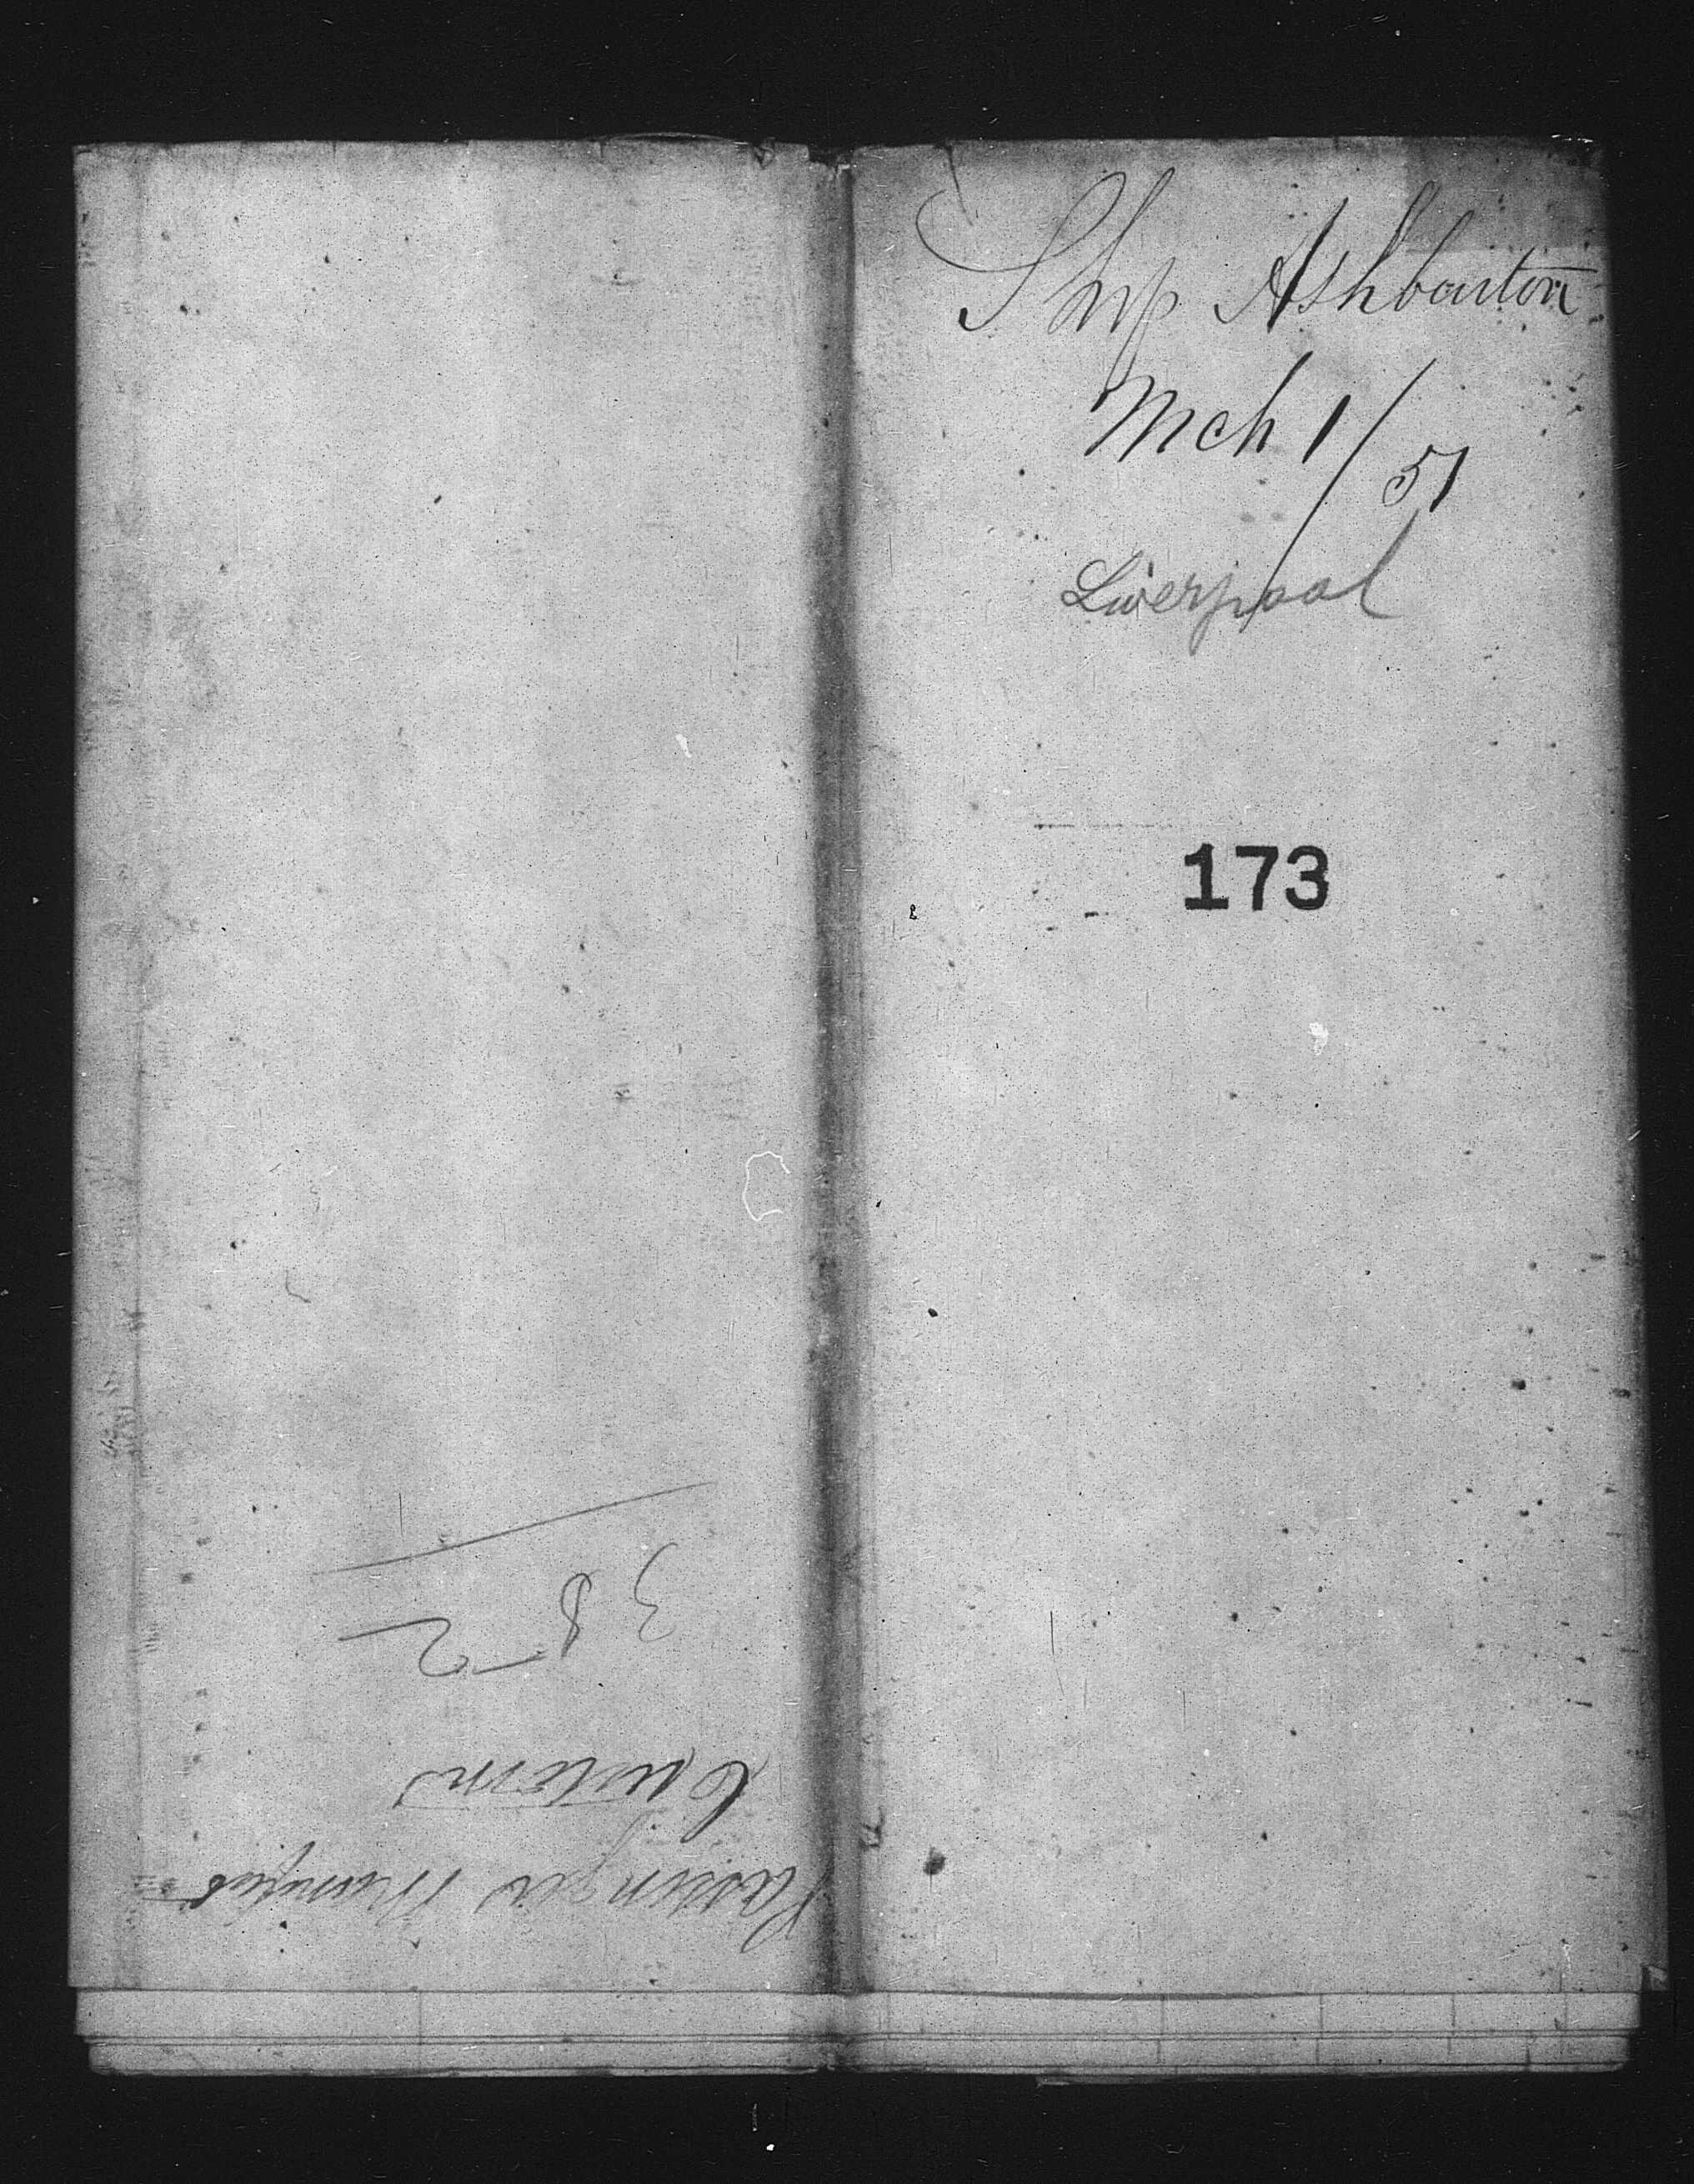 Ship Ashburton
Mch 1/51
Liverpool
173
Passenger Manifest
Customs
382